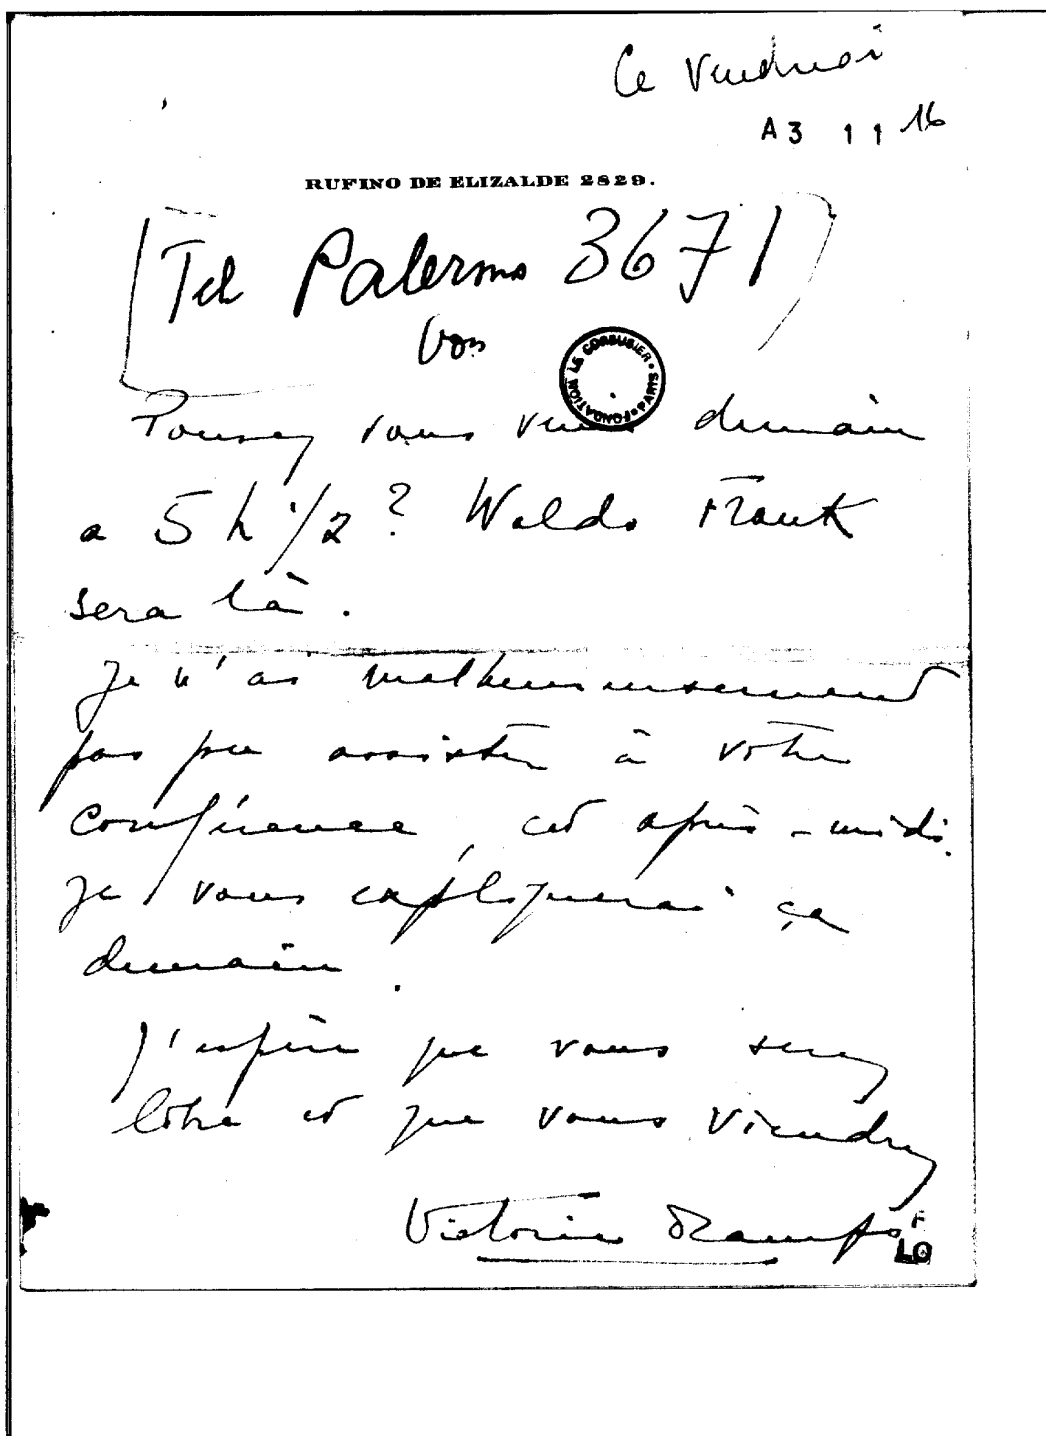 Ce Vendredi
A3 11 16
RUFINO DE ELIZALDE 2829.
Tel Palermo 3671
FONDATION LE CORBUSIER • PARIS •
Pouvez vous venir demain
a 5 h 1/2 ? Waldo Frank
sera là.
Je n'ai malheureusement
pas pu assister à votre
conférence, cet après-midi.
Je vous expliquerai ça
demain.
J'espère que vous serez
libre et que vous viendrez
Victoria Ocampo